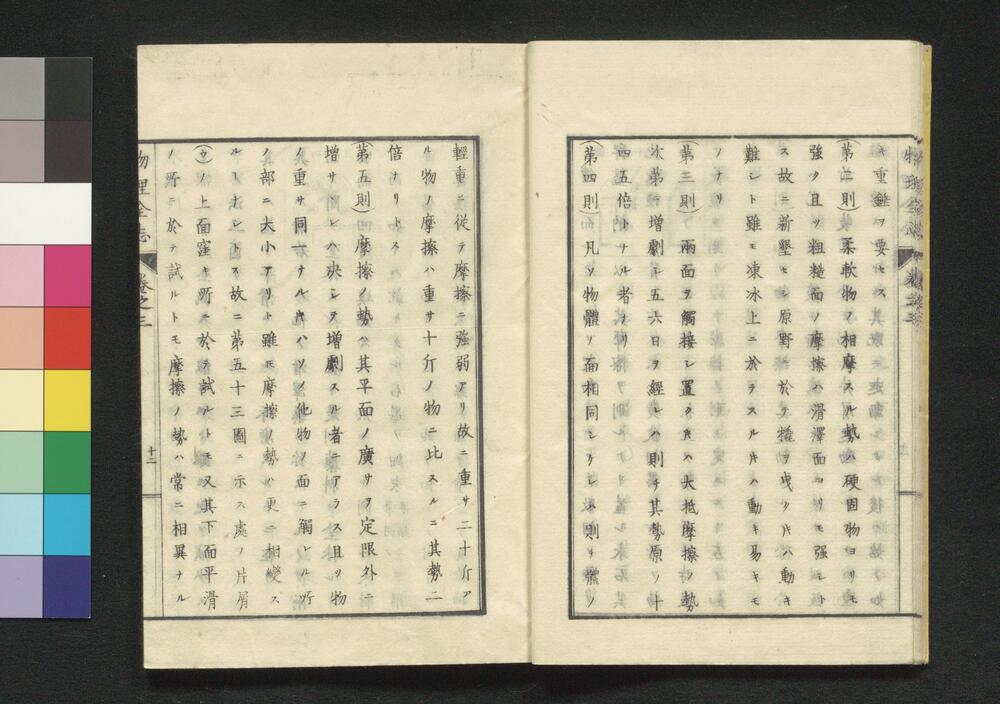 キ重錘ヲ要セス
(第二則)柔軟物ノ相摩スル勢ハ硬固物ヨリモ
強ク且ツ粗糙面ノ摩擦ハ滑澤面ヨリモ强シト
ス故ニ新墾セシ原野ニ於テ橇ヲ曳クトキハ動キ
難シト雖モ凍冰上ニ於テスルトキハ動キ易キモ
ノナリ
(第三則)兩面ヲ觸接シ置クトキハ大抵摩擦ノ勢
次第ニ增劇シ五六日ヲ經レハ則チ其勢原ノ十
四五倍トナル者ナリ
(第四則)凡ソ物體ソノ面相同シケレハ則チ體ノ
輕重ニ從テ摩擦ニ強弱アリ故ニ重サ二十斤ア
ル物ノ摩擦ハ重サ十斤ノ物ニ比スルニ其勢二
倍ナリトス
(第五則)摩擦ノ勢ハ其平面ノ廣サヲ定限外ニ
增サヾレハ决シテ增劇スル者ニアラス且ツ物
ノ重サ同一ナルトキハソノ他物ノ面ニ觸レルル所
ノ部ニ大小アリト雖モ摩擦ノ勢ハ更ニ相變ス
ルヿナシトス故ニ第五十三圖ニ示ス處ノ片屑
(ウ)ノ上面窪キ所ニ於テ試ルトモ又其下面平滑
ノ所ニ於テ試ルトモ摩擦ノ勢ハ常ニ相異ナル
物理全志
卷之三
十二